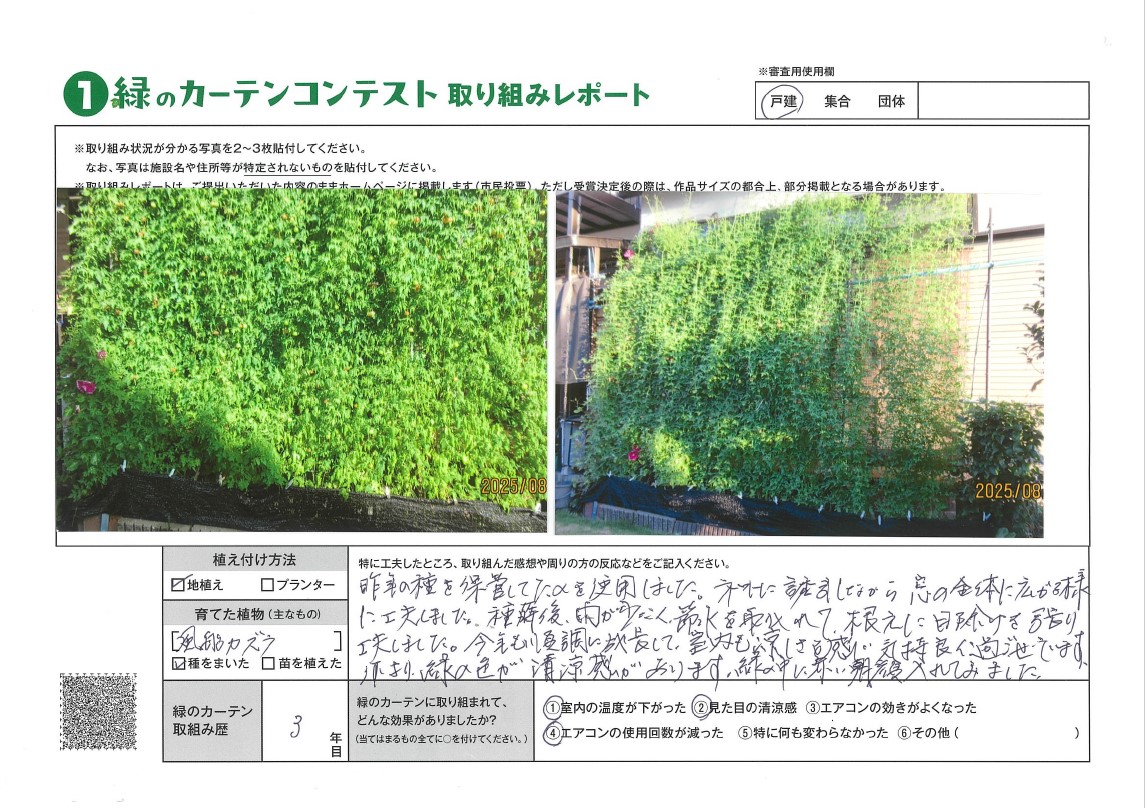 ※審査用使用欄
1 緑のカーテンコンテスト 取り組みレポート
戸建 集合 団体
※取り組み状況が分かる写真を2〜3枚貼付してください。
なお、写真は施設名や住所等が特定されないものを貼付してください。
※取り組みレポートは、ご提出いただいた内容のままホームページに掲載します(市民投票)。ただし受賞決定後の際は、作品サイズの都合上、部分掲載となる場合があります。
2025/08
2025/08
植え付け方法
地植え プランター
育てた植物(主なもの)
[風船カズラ]
種をまいた 苗を植えた
特に工夫したところ、取り組んだ感想や周りの方の反応などをご記入ください。
昨年の種を保管してたのを使用しました。ネットに誘引しながら 窓の全体に広がる様
に工夫しました。種蒔後、雨が少なく、節水を取り入れて、根元に日除けを張り
工夫しました。今年も順調に成長して、室内も涼しさを感じ 気持良く過ごせています
緑の色が 清涼感があります。緑の中に赤い朝顔入れてみました
緑のカーテン
取組み歴
3 年目
緑のカーテンに取り組まれて、
どんな効果がありましたか?
(当てはまるもの全てに○を付けてください。)
①室内の温度が下がった ②見た目の清涼感 ③エアコンの効きがよくなった
④エアコンの使用回数が減った ⑤特に何も変わらなかった ⑥その他 ( )